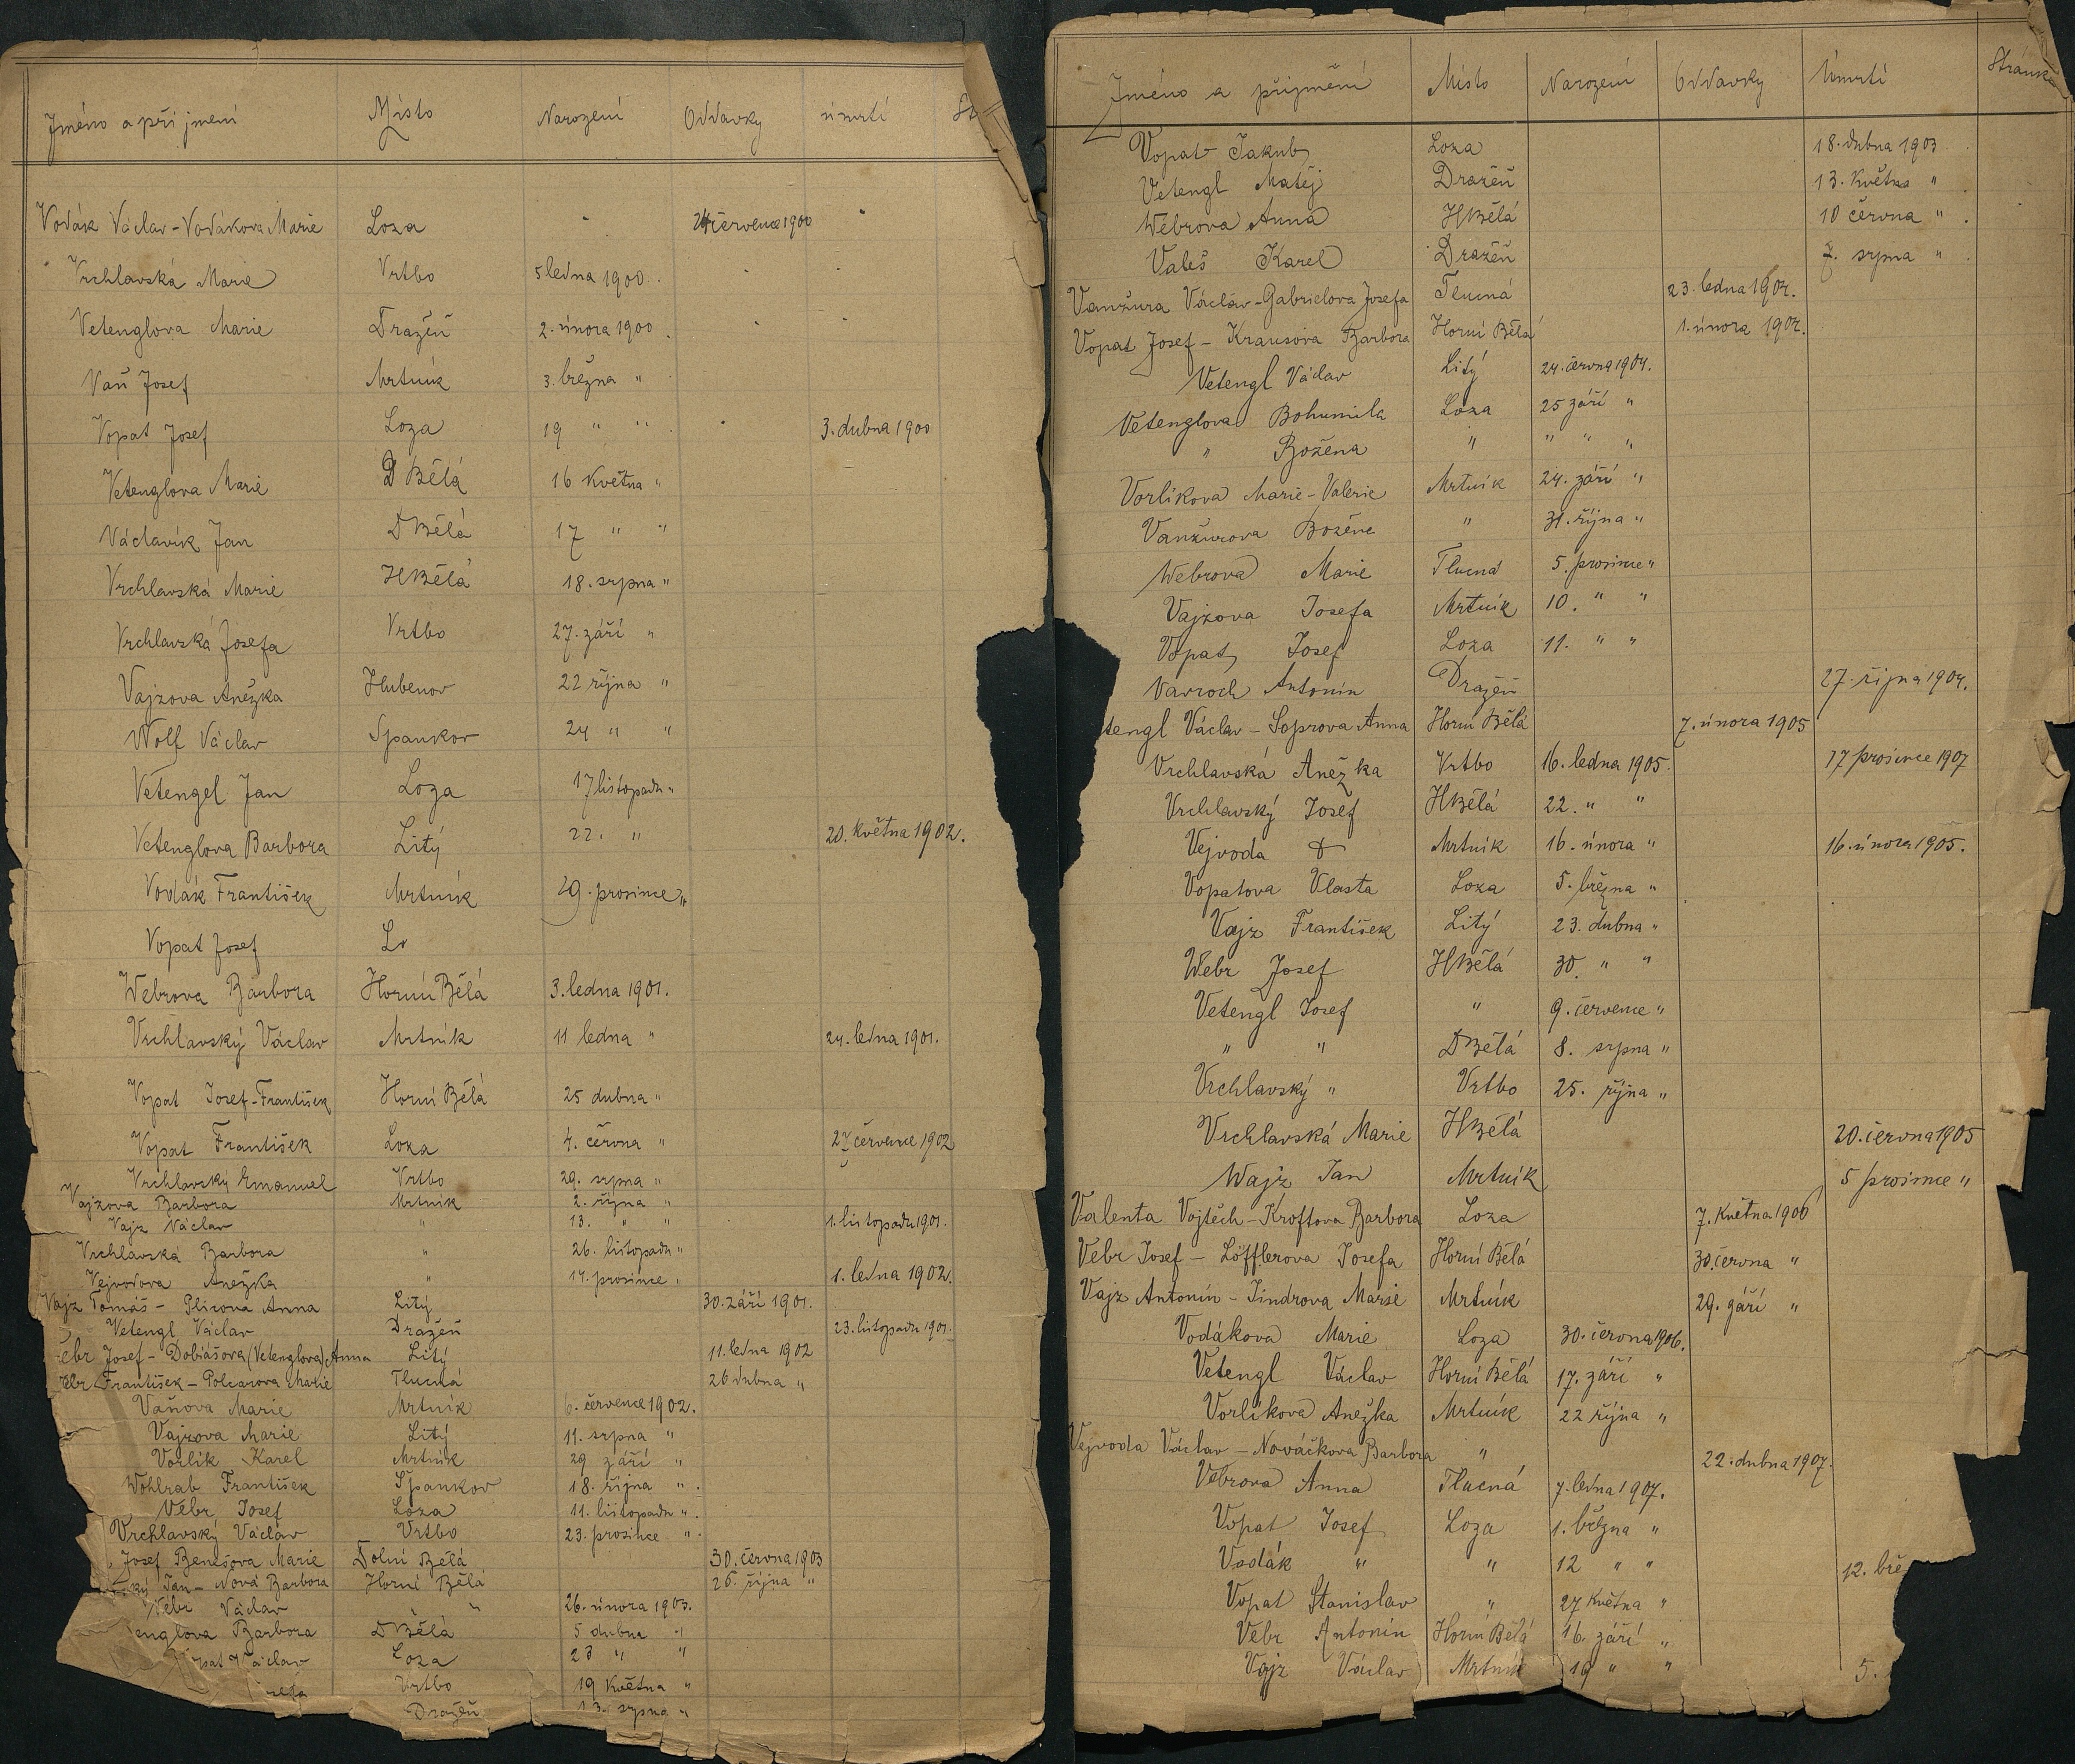 Jméno a přijmení Místo Narození Oddavky úmrtí St
Vodák Václav - Vodákova Marie Loza července 1900
Vrchlavská Marie Vrtbo 5 ledna 1900.
Vetenglova Marie Dražeň 2. února 1900
Vaň Josef Mrtník 3. března "
Vopat Josef Loza 19 " " 3. dubna 1900
Vetenglova Marie D Bělá 16 Května "
Václavík Jan DBělá 17 " "
Vrchlavská Marie HBělá 18. srpna "
Vrchlavská Josefa Vrtbo 27. září "
Vajzova Anežka Hubenov 22 října "
Wolf Václav Spankov 24 " "
Vetengel Jan Loza 17 listopadu "
Vetenglova Barbora Litý 22. " 20. Května 1902.
Vodák František Mrtník 29. prosince "
Vopat Josef Lo
Webrova Barbora Horní Bělá 3. ledna 1901.
Vrchlavský Václav Mrtník 11 ledna " 24. ledna 1901.
Vopat Josef-František Horní Bělá 25 dubna "
Vopat František Loza 4. června " 27 července 1902
Vrchlavský Emanuel Vrtbo 29. srpna "
Vajzova Barbora Mrtník 2. října "
Vajz Václav " 13. " " 1. listopadu 1901.
Vrchlavská Barbora " 26. listopadu "
Vejvodova Anežka " 14. prosince " 1. ledna 1902.
Vajz Tomáš - Plicova Anna Litý 30. září 1901.
Vetengl Václav Dražeň 23. listopadu 1901.
ebr Josef - Dobiášova (Vetenglova) Anna Litý 11. ledna 1902
ebr František - Polcarova Marie Tlucná 26 dubna "
Vaňova Marie Mrtník 6. července 1902.
Vajzova Marie Litý 11. srpna "
Vorlík Karel Mrtník 29 září "
Wohlrab František Špankov 18. října "
Vebr Josef Loza 11. listopadu "
Vrchlavský Václav Vrtbo 23. prosince "
Josef Benešova Marie Dolní Bělá 30. června 1903
ký Jan - Nová Barbora Horní Bělá 26. října "
Vebr Václav " " 26. února 1903.
englova Barbora DBělá 5 dubna "
opat Václav Loza 23 " "
Vrtbo 19 Května "
Dražeň 13. srpna "
Jméno a příjmení Místo Narození Oddavky Úmrtí Stránka
Vopat Jakub Loza 18. dubna 1903
Vetengl Matěj Dražěň 13. Května "
Webrova Anna HBělá 10 června "
Valeš Karel Dražěň 2. srpna "
Vanžura Václav - Gabrielova Josefa Tlucná 23. ledna 1904.
Vopat Josef - Krausova Barbora Horní Bělá 1. února 1904.
Vetengl Václav Litý 24. června 1904.
Vetenglova Bohumila Loza 25 září "
" Božena " " " "
Vorlikova Marie-Valerie Mrtník 24. září "
Vanžurova Božena " 31. října "
Webrova Marie Tlucná 5. prosince "
Vajzova Josefa Mrtník 10. " "
Vopat Josef Loza 11. " "
Vavroch Antonín Dražeň 27. října 1904.
tengl Václav - Soprova Anna Horní Bělá 7. února 1905
Vrchlavská Anežka Vrtbo 16. ledna 1905. 17 prosince 1907
Vrchlavský Josef HBělá 22. " "
Vejvoda ✝ Mrtník 16. února " 16. února 1905.
Vopatova Vlasta Loza 5. března "
Vajz František Litý 23. dubna "
Webr Josef HBělá 30. " "
Vetengl Josef " 9. července "
" " DBělá 8. srpna "
Vrchlavský " Vrtbo 25. října "
Vrchlavská Marie HBělá 20. června 1905
Wajz Jan Mrtník 5 prosince "
Valenta Vojtěch - Kroftova Barbora Loza 7. Května 1906
Vebr Josef - Löfflerova Josefa Horní Bělá 30. června "
Vajz Antonín - Jindrova Marie Mrtník 29. září "
Vodákova Marie Loza 30. června 1906.
Vetengl Václav Horní Bělá 17. září "
Vorlíkova Anežka Mrtník 22 října "
Vejvoda Václav - Nováčkova Barbora " 22. dubna 1907.
Vebrova Anna Tlucná 7. ledna 1907.
Vopat Josef Loza 1. března "
Vodák " " 12 " " 12. bře
Vopat Stanislav " 27 Května "
Vebr Antonín Horní Bělá 16. září "
Vajz Václav Mrtník 19 " " 5.